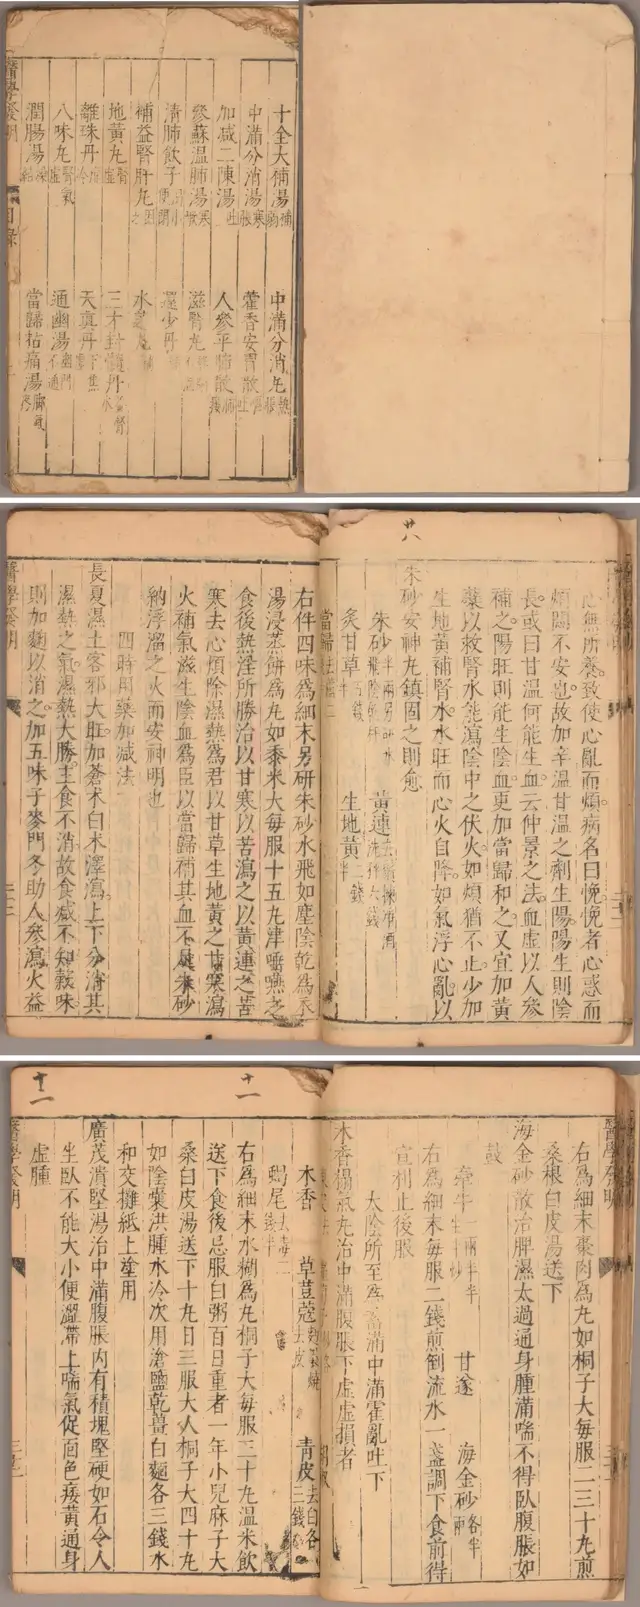 十全大補湯
中滿分消湯寒脹
加減二陳湯吐
參蘇溫肺湯寒
清肺飲子
補益腎肝丸
地黃丸腎虛
離珠丹
八味丸腎氣虛
潤腸湯
醫學發明
目錄
中滿分消丸熱脹
藿香安胃散
人參平肺散
滋腎丸
還少丹
水
三才封髓丹
天真丹下焦
通幽湯幽門不通
當歸拈痛湯
廿八
心無所養致使心亂而煩病名曰悗悗者心惑而
煩悶不安也故加辛溫甘溫之劑生陽陽生則陰
長或曰甘溫何能生血云仲景之法血虛以人參
補之陽旺則能生陰血更加當歸和之又宜加黃
蘗以救腎水能瀉陰中之伏火如煩猶不止少加
生地黃補腎水水旺而心火自降如氣浮心亂以
朱砂安神丸鎮固之則愈
朱砂
黃連
炙甘草
生地黃
當歸
右件四味為細末另研朱砂水飛如塵陰乾為衣
湯浸蒸餅為丸如黍米大每服十五丸津嚥之
食後熱淫所勝治以甘寒以苦瀉之以黃連之苦
寒去心煩除濕熱為君以甘草生地黃之甘寒瀉
火補氣滋生陰血為臣以當歸補其血不足朱砂
納浮溜之火而安神明也
四時用藥加減法
長夏濕土客邪大旺加蒼朮白朮澤瀉上下分消其
濕熱之氣濕熱大勝主食不消故食減不知穀味
則加麴以消之加五味子麥門冬助人參瀉火益
醫學發明
右為細末棗肉為丸如桐子大每服二三十丸煎
桑根白皮湯送下
海金砂散治脾濕太過通身腫滿喘不得臥腹脹如
鼓
牽牛一兩半
甘遂
海金砂各半兩
右為細末每服二錢煎倒流水一盞調下食前得
宣利止後服
太陰所至為蓄滿中滿霍亂吐下
木香塌氣丸治中滿腹脹下虛虛損者
木香
草荳蔻
青皮去白各三錢
蝎尾
右為細末水糊為丸桐子大每服三十丸溫米飲
送下食後忌服白粥百日重者一年小兒麻子大
桑白皮湯送下十丸日三服大人桐子大四十丸
如陰囊洪腫水冷次用滄鹽乾薑白麵各三錢水
和交攤紙上塗用
廣茂潰堅湯治中滿腹脹內有積塊堅硬如石令人
坐臥不能大小便澀滯上喘氣促面色痿黃通身
虛腫
醫學發明